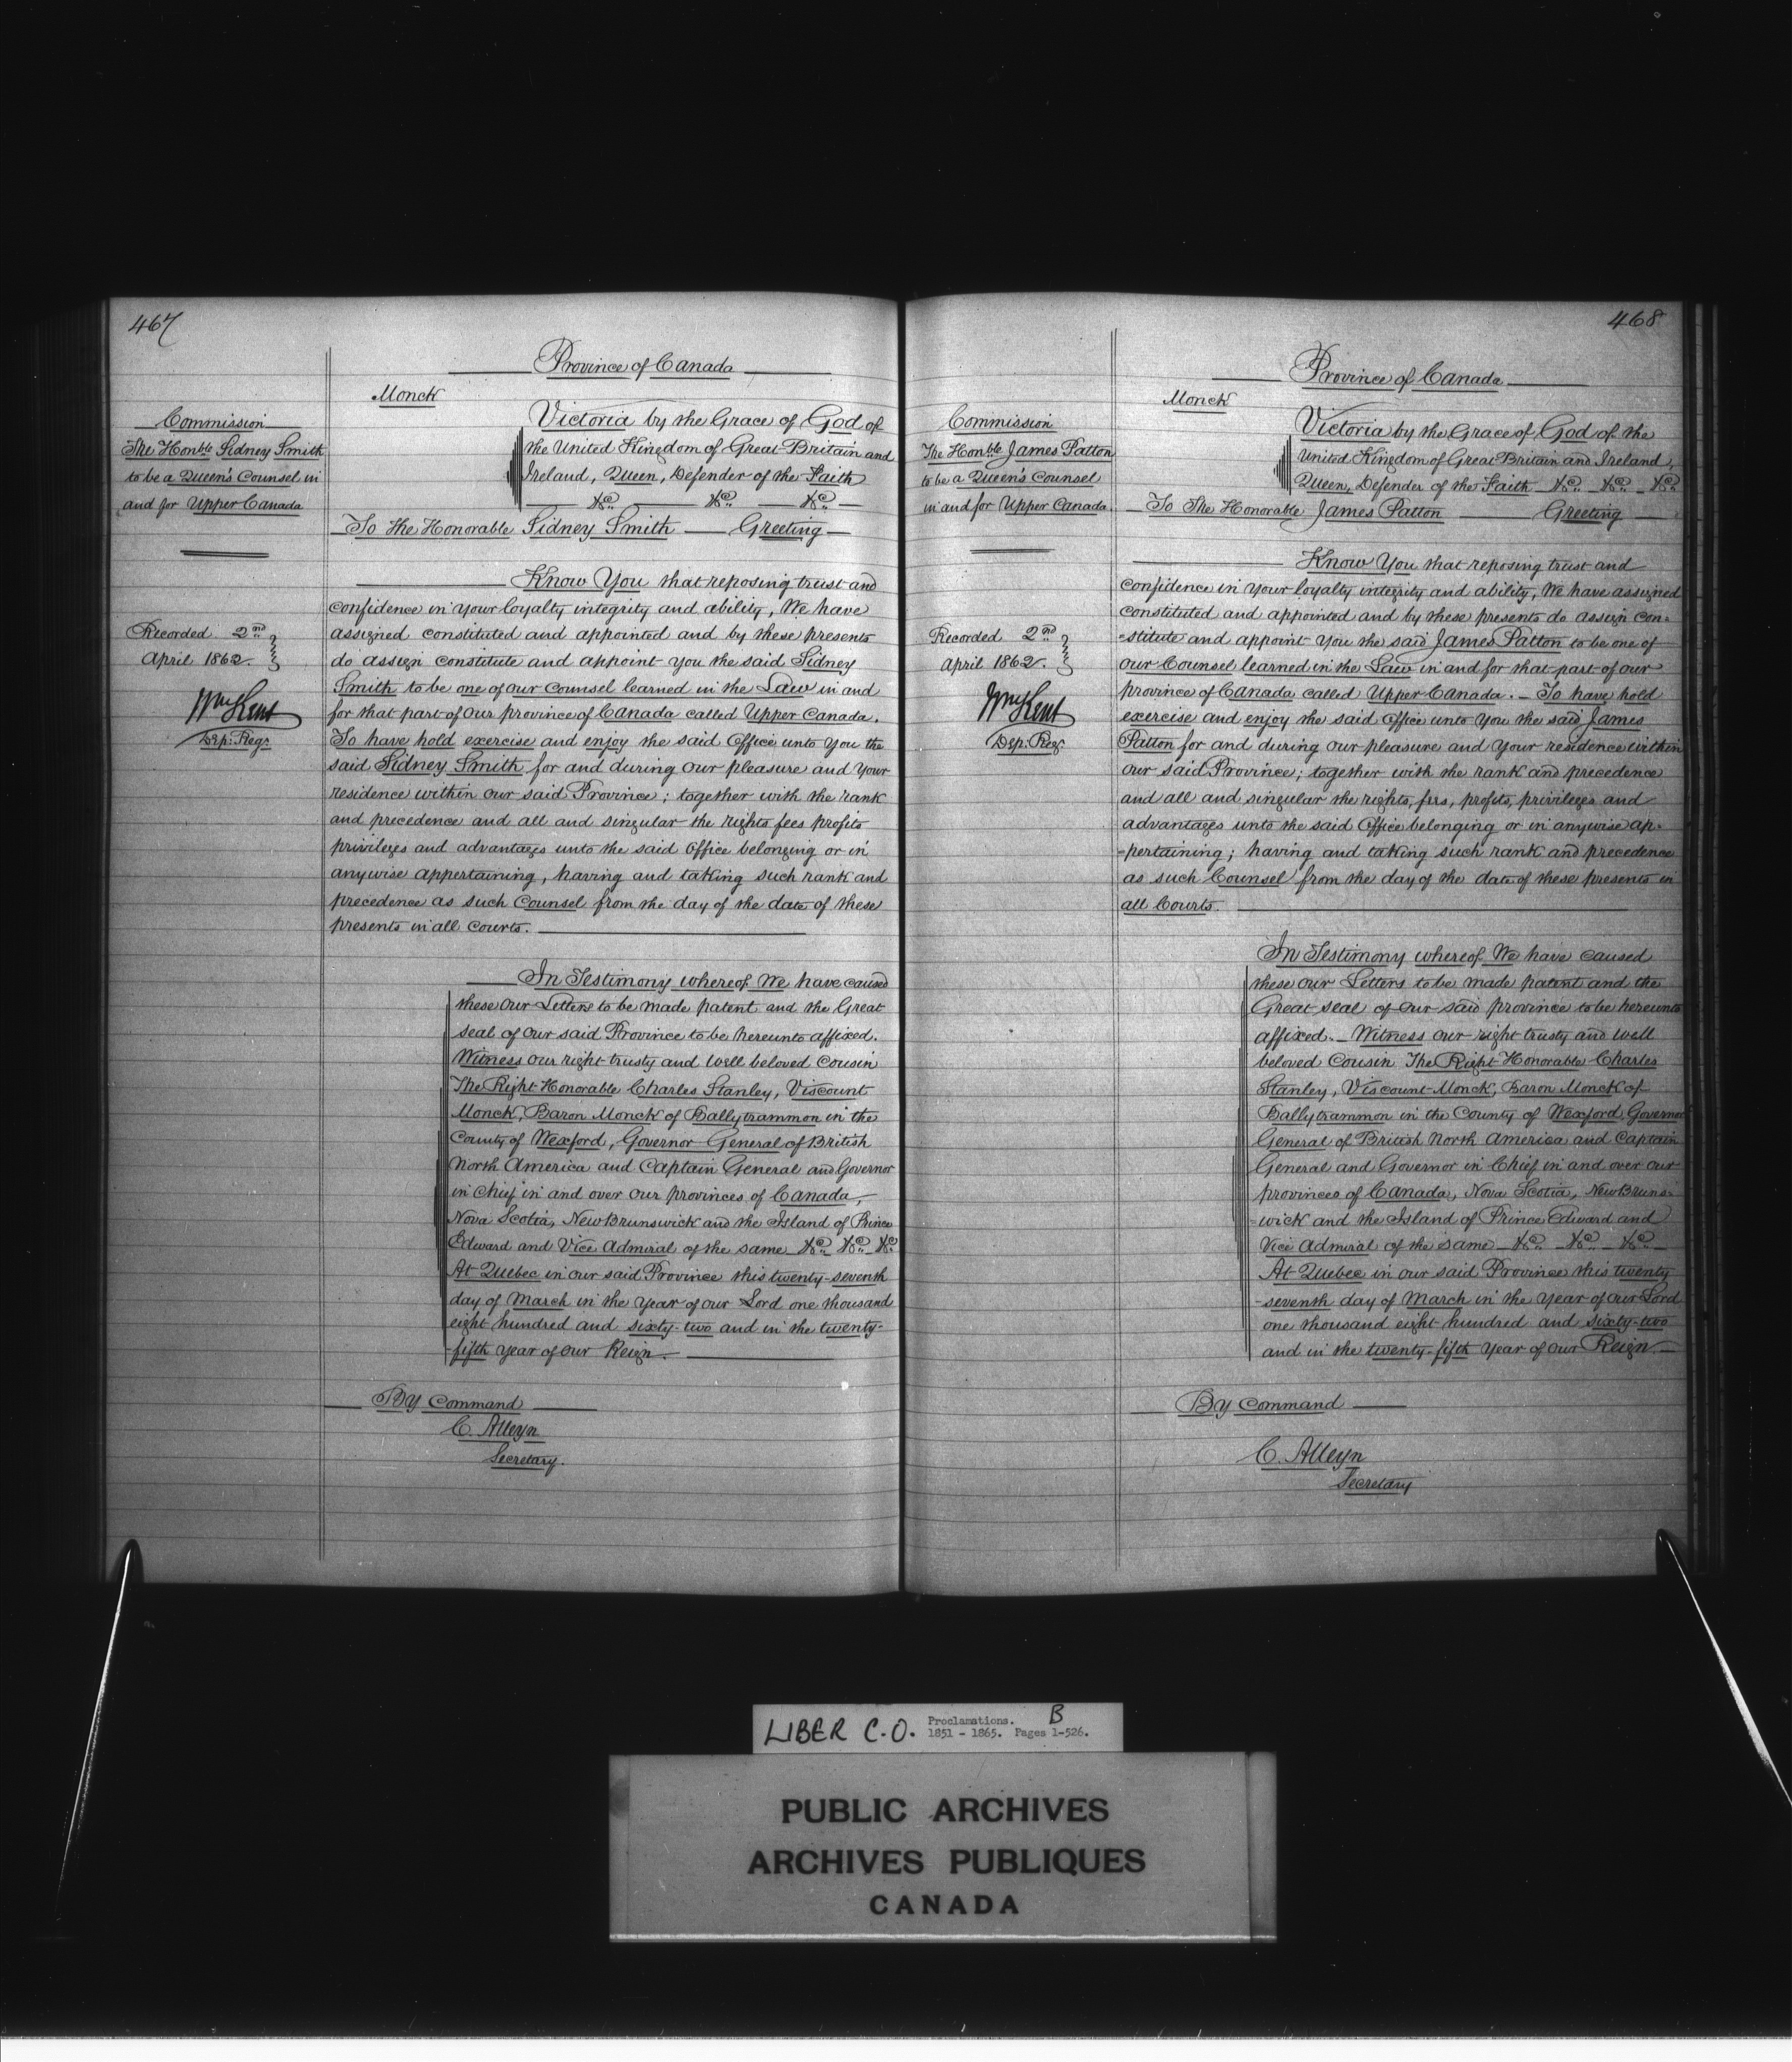 467
Province of Canada
Monck
Commission
The Honble Sidney Smith
to be a Queen's Counsel in
and for Upper Canada
Recorded 2nd
April 1862.
Wm Kent
Dep: Regr
Victoria by the Grace of God of
the United Kingdom of Great Britain and
Ireland, Queen, Defender of the Faith
&c. &c. &c.
To the Honorable Sidney Smith Greeting
Know You that reposing trust and
confidence in your loyalty integrity and ability, We have
assigned constituted and appointed and by these presents
do assign constitute and appoint you the said Sidney
Smith to be one of our counsel learned in the Law in and
for that part of our province of Canada called Upper Canada.
To have hold exercise and enjoy the said Office unto you the
said Sidney Smith for and during our pleasure and your
residence within our said Province; together with the rank
and precedence and all and singular the rights fees profits
privileges and advantages unto the said Office belonging or in
anywise appertaining, having and taking such rank and
precedence as such Counsel from the day of the date of these
presents in all courts.
In Testimony whereof We have caused
these our Letters to be made patent and the Great
seal of our said Province to be hereunto affixed.
Witness our right trusty and well beloved cousin
The Right Honorable Charles Stanley, Viscount
Monck, Baron Monck of Ballytrammon in the
County of Wexford, Governor General of British
North America and Captain General and Governor
in Chief in and over our provinces of Canada,
Nova Scotia, New Brunswick and the Island of Prince
Edward and Vice Admiral of the same &c. &c. &c.
At Quebec in our said Province this twenty-seventh
day of March in the year of our Lord one thousand
eight hundred and sixty-two and in the twenty-
fifth year of our Reign.
By Command
C. Alleyn
Secretary.
468
Province of Canada
Monck
Commission
The Honble James Patton
to be a Queen's Counsel
in and for Upper Canada
Recorded 2nd
April 1862.
Wm Kent
Dep: Regr
Victoria by the Grace of God of the
United Kingdom of Great Britain and Ireland,
Queen, Defender of the Faith &c. &c. &c.
To The Honorable James Patton Greeting
Know You that reposing trust and
confidence in your loyalty integrity and ability, We have assigned
constituted and appointed and by these presents do assign con=
=stitute and appoint you the said James Patton to be one of
our Counsel learned in the Law in and for that part of our
province of Canada called Upper Canada. - To have hold
exercise and enjoy the said Office unto you the said James
Patton for and during our pleasure and your residence within
our said Province; together with the rank and precedence
and all and singular the rights, fees, profits, privileges and
advantages unto the said Office belonging or in anywise ap=
=pertaining; having and taking such rank and precedence
as such Counsel from the day of the date of these presents in
all Courts.
In Testimony whereof We have caused
these our Letters to be made patent and the
Great seal of our said province to be hereunto
affixed. - Witness our right trusty and well
beloved Cousin The Right Honorable Charles
Stanley, Viscount Monck, Baron Monck of
Ballytrammon in the County of Wexford Governor
General of British North America and Captain
General and Governor in Chief in and over our
provinces of Canada, Nova Scotia, New Bruns=
=wick and the Island of Prince Edward and
Vice Admiral of the same &c. &c. &c.
At Quebec in our said Province this twenty
-seventh day of March in the year of our Lord
one thousand eight hundred and sixty-two
and in the twenty-fifth year of our Reign.
By Command
C. Alleyn
Secretary
LIBER C.O. Proclamations. B
1851 - 1865. Pages 1-526.
PUBLIC ARCHIVES
ARCHIVES PUBLIQUES
CANADA